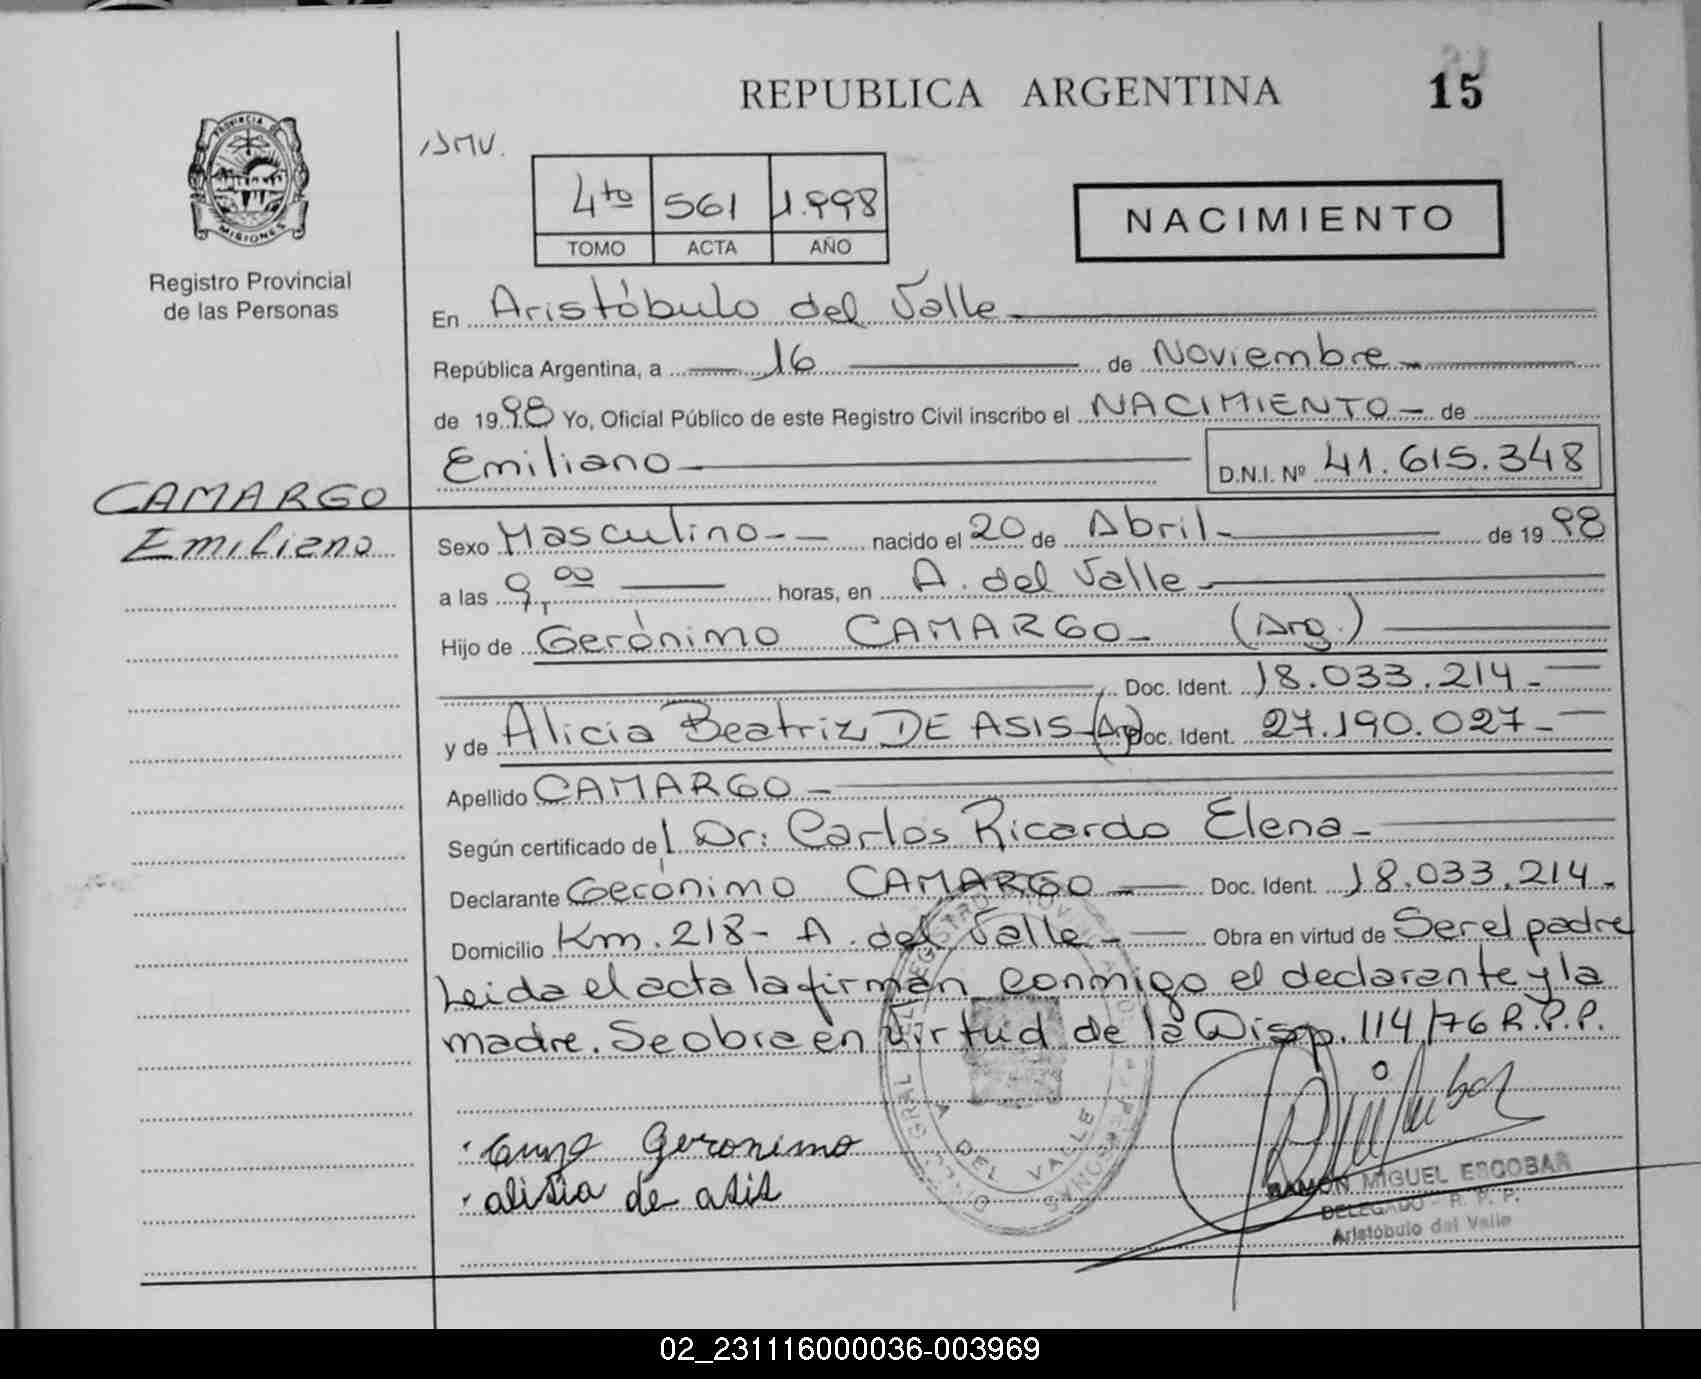 REPUBLICA ARGENTINA
15
PROVINCIA DE
MISIONES
Registro Provincial
de las Personas
4to 561 1.998
TOMO ACTA AÑO
NACIMIENTO
En Aristóbulo del Valle
República Argentina, a 16 de Noviembre
de 1998 Yo, Oficial Público de este Registro Civil inscribo el NACIMIENTO de
Emiliano D.N.I. Nº 41.615.348
CAMARGO
Emiliano
Sexo Masculino nacido el 20 de Abril de 1998
a las 9,00 horas, en A. del Valle
Hijo de Gerónimo CAMARGO (Arg.)
Doc. Ident. 18.033.214
y de Alicia Beatriz DE ASIS (Arg) Doc. Ident. 27.190.027
Apellido CAMARGO
Según certificado del Dr: Carlos Ricardo Elena
Declarante Gerónimo CAMARGO Doc. Ident. 18.033.214
Domicilio Km. 218- A. del Valle Obra en virtud de Ser el padre
Leida el acta la firman conmigo el declarante y la
madre. Se obra en virtud de la Disp. 114/76 R.P.P.
Geronimo
alisia de asis
A DEL VALLE
RAMON MIGUEL ESCOBAR
DELEGADO - R. P. P.
Aristóbulo del Valle
02_231116000036-003969